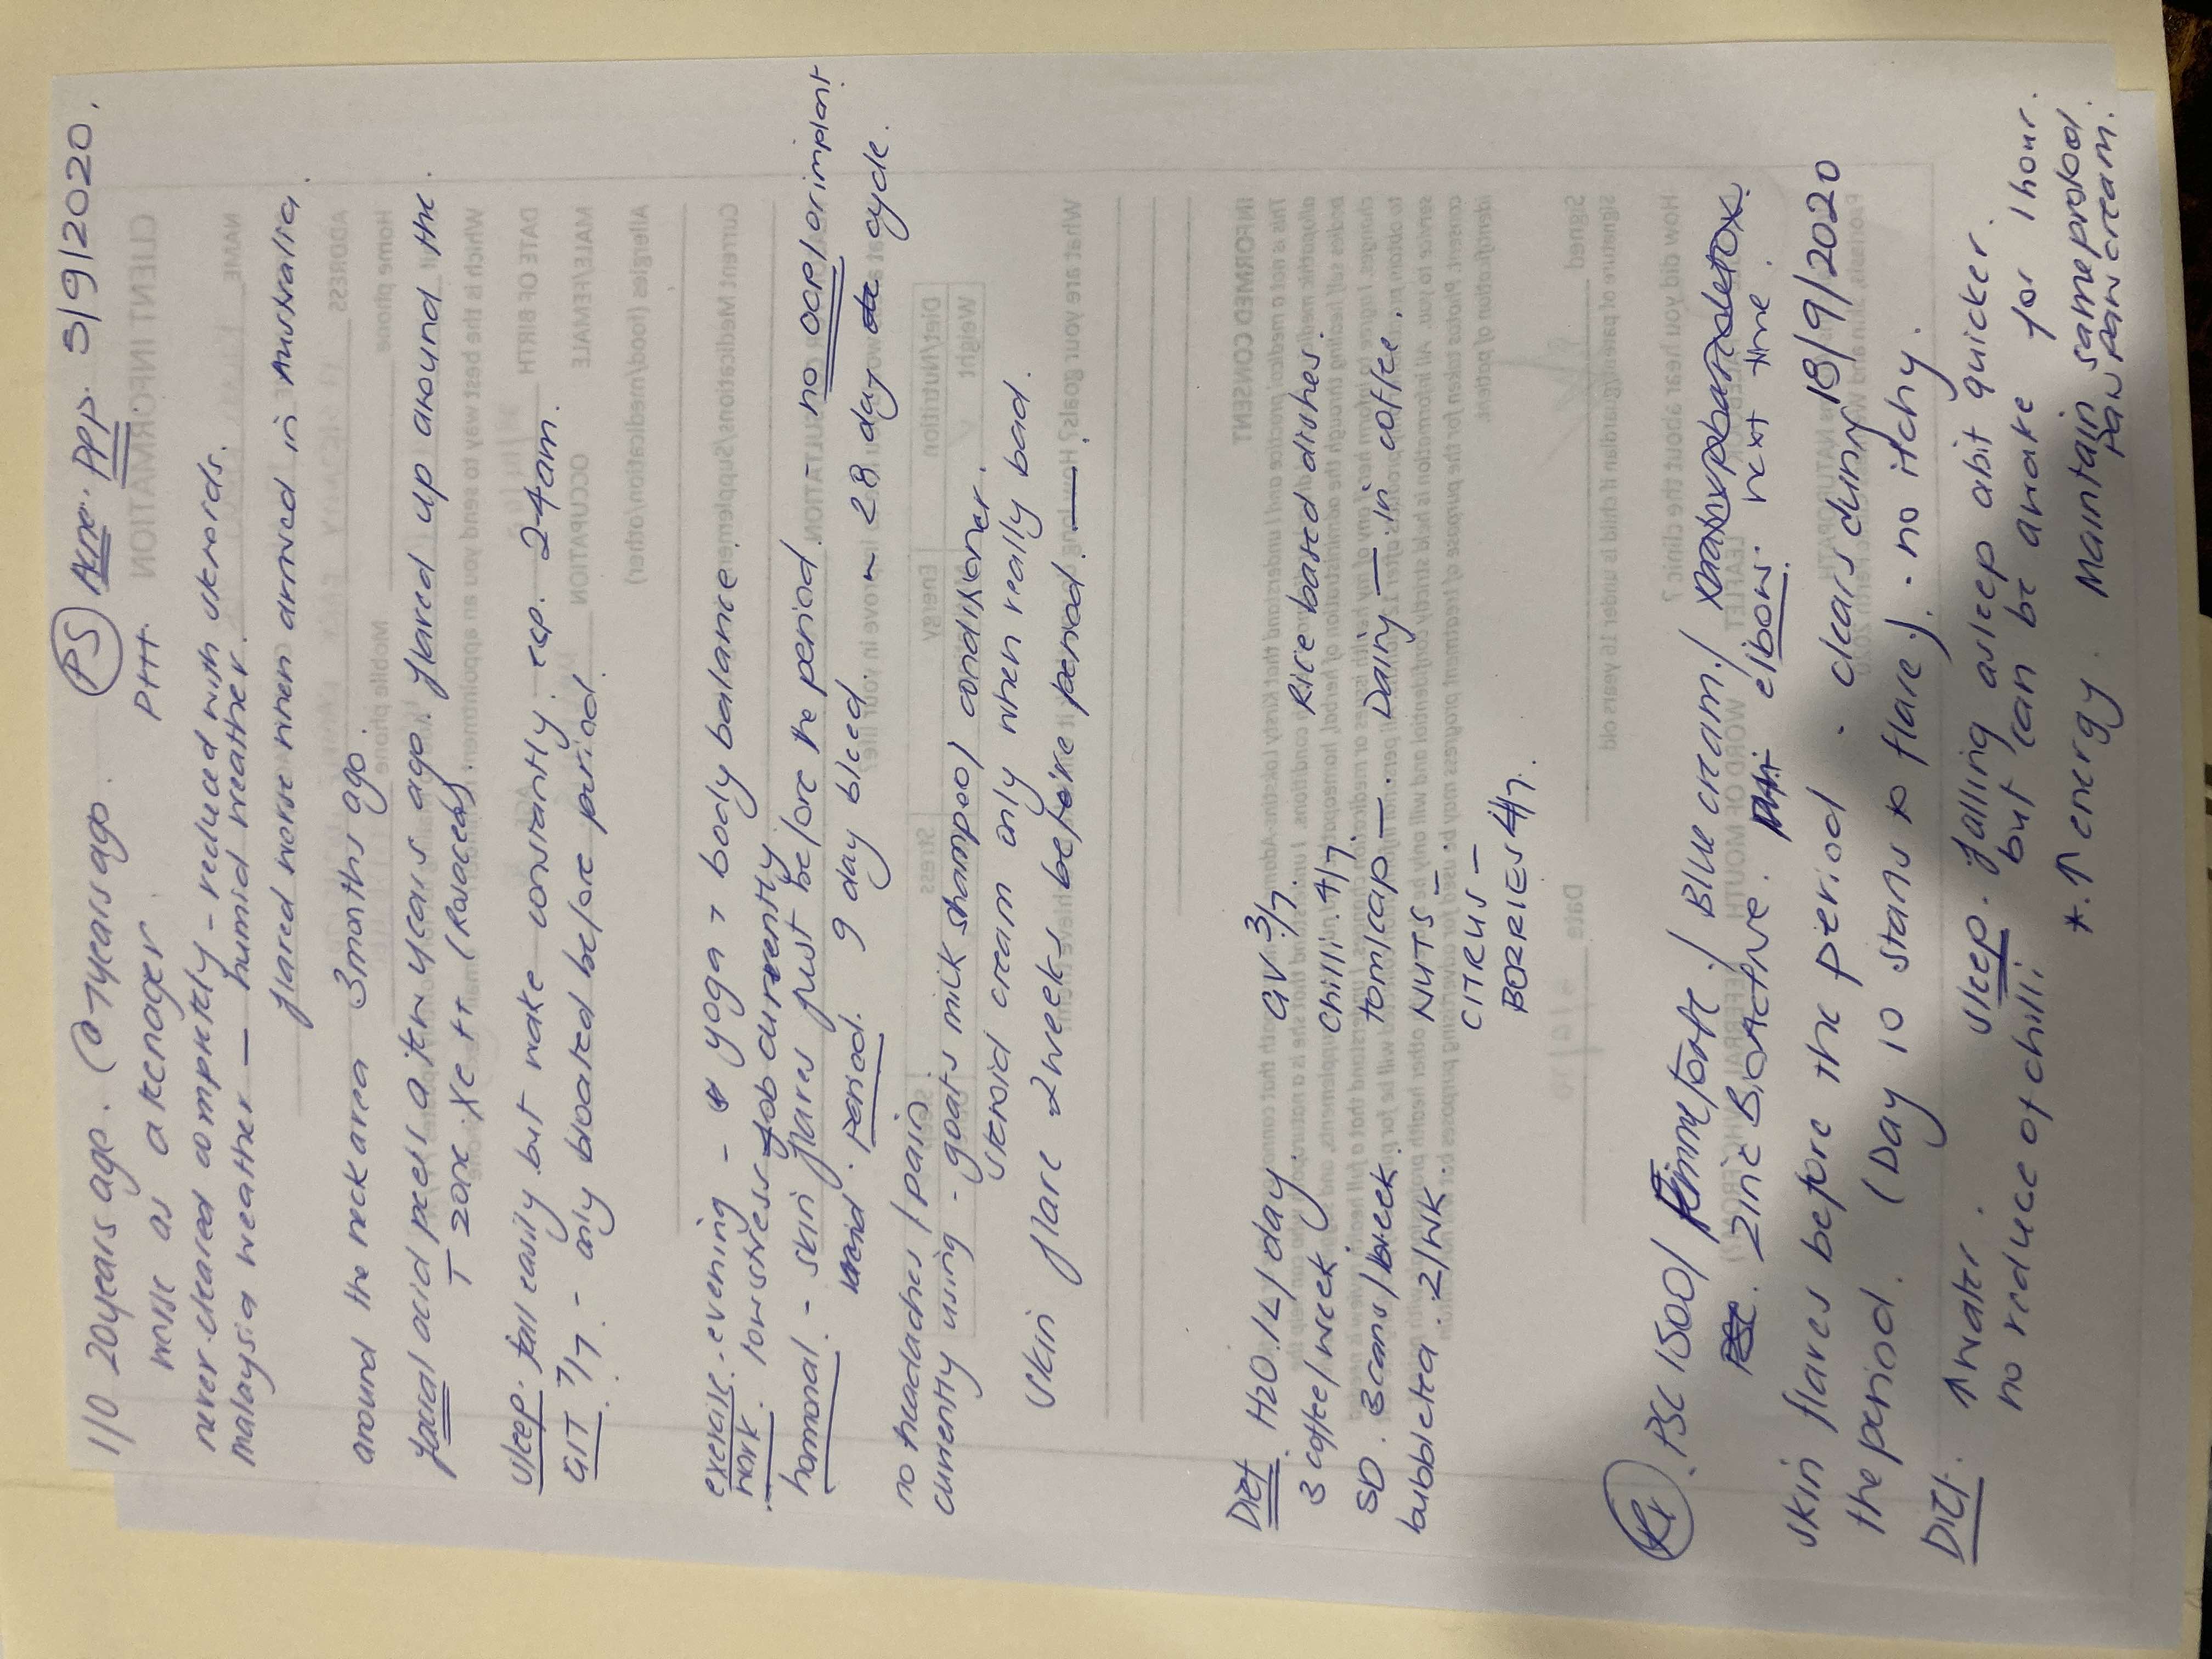 1/0 20 years ago. @ 7 years ago. PS Acne. PPP. 3/9/2020.
worse as a teenager PHH
never cleared completely - reduced with steroids.
malaysia weather — humid weather.
flared worse when arrived in Australia.
around the neck area 3 months ago.
facial acid peel a few years ago. flared up around the
T zone. (Rosacea).
sleep. fall easily but wake constantly. esp. 2-4am.
GIT. 7/7. - only bloated before period.
exercise. evening - yoga + body balance.
work. low stress job currently
homonal. - skin flares just before the period. - no OCP/or implant
period. 9 day bleed. ~ 28 day cycle.
no headaches / pain.
currently using - goats milk shampoo/ conditioner.
steroid cream only when really bad.
skin flare 2 weeks before period.
Diet. H2O. 1L/day. GV 3/7. Rice based dishes.
3 coffee/week chilli. 4/7.
SD. 3 cans/week. tom/cap — Dairy — in coffee.
bubbletea. 2/WK. NUTS —
CITRUS —
BERRIES 4/7.
Rx. PSC 1500/ Femme forte / Blue cream /
Zinc BioActive. elbow. next time.
skin flares before the period. clears during 18/9/2020
the period. (Day 10 starts to flare). no itchy.
DIET. ↑ water. sleep. falling asleep abit quicker.
no reduce of chilli but can be awake for 1 hour.
*. ↑ energy. Maintain same protocol
paw paw cream.